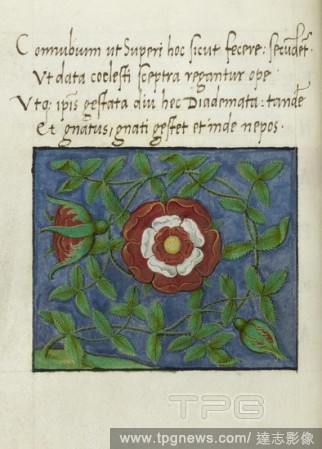 Connubium ut Superi hoc sicut fecere: secundẽt
Ut data coelesti sceptra regantur ope
Utq; ipĩs gestata diu hec Diademata: tandẽ
Et gnatus, gnati gestet et inde nepos.
TPG
www.tpgnews.com/ 達志影像